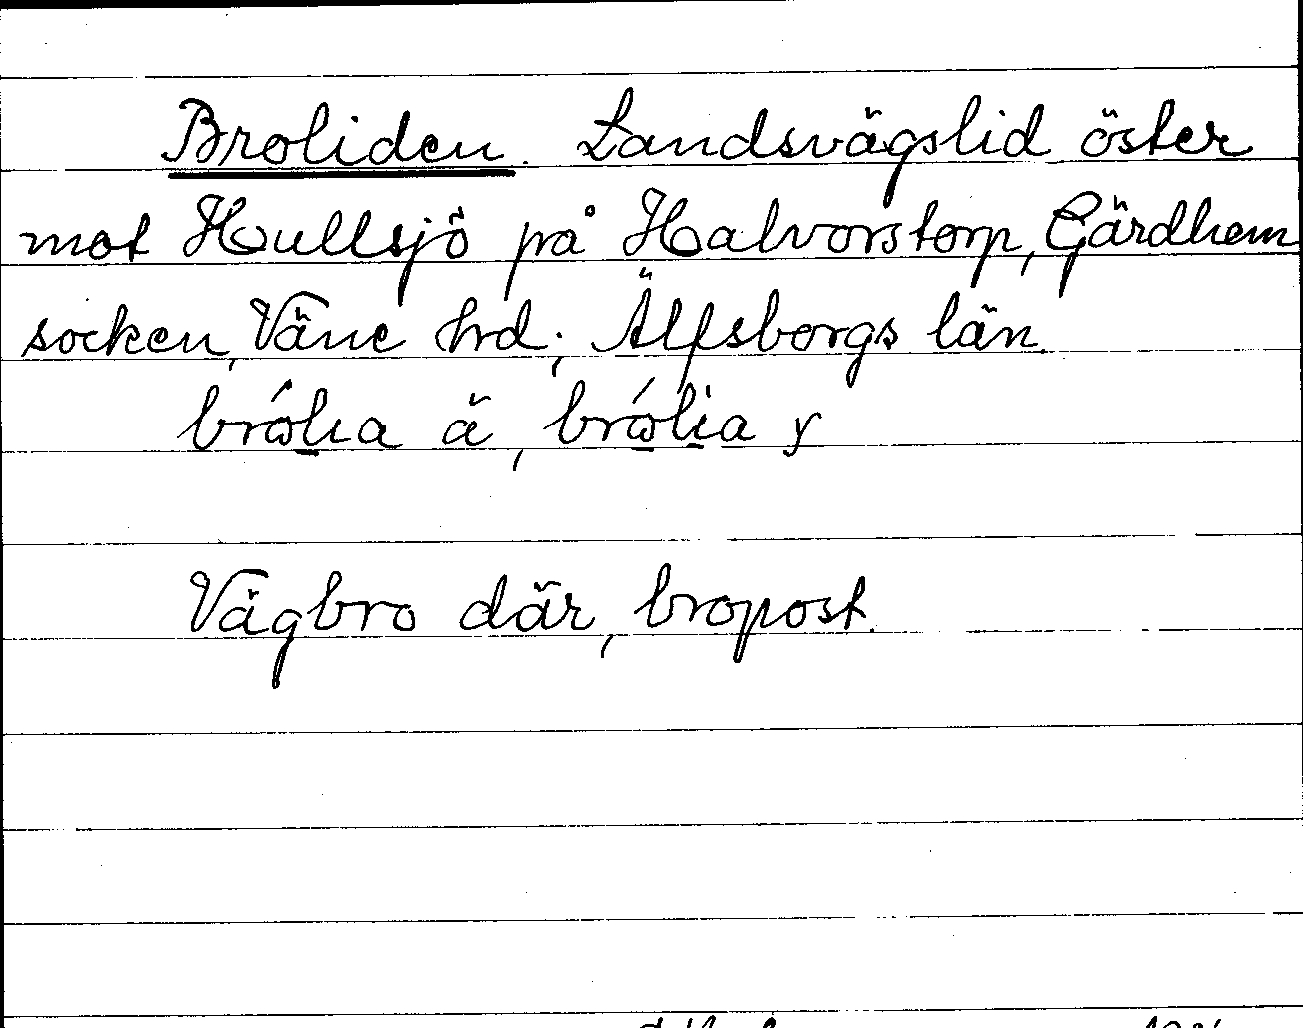 Broliden. Landsvägslid öster
mot Hullsjö på Halvorstorp, Gärdhem
socken, Väne hrd; Älfsborgs län.
brólia ä, brólia y
Vägbro där, bropost.